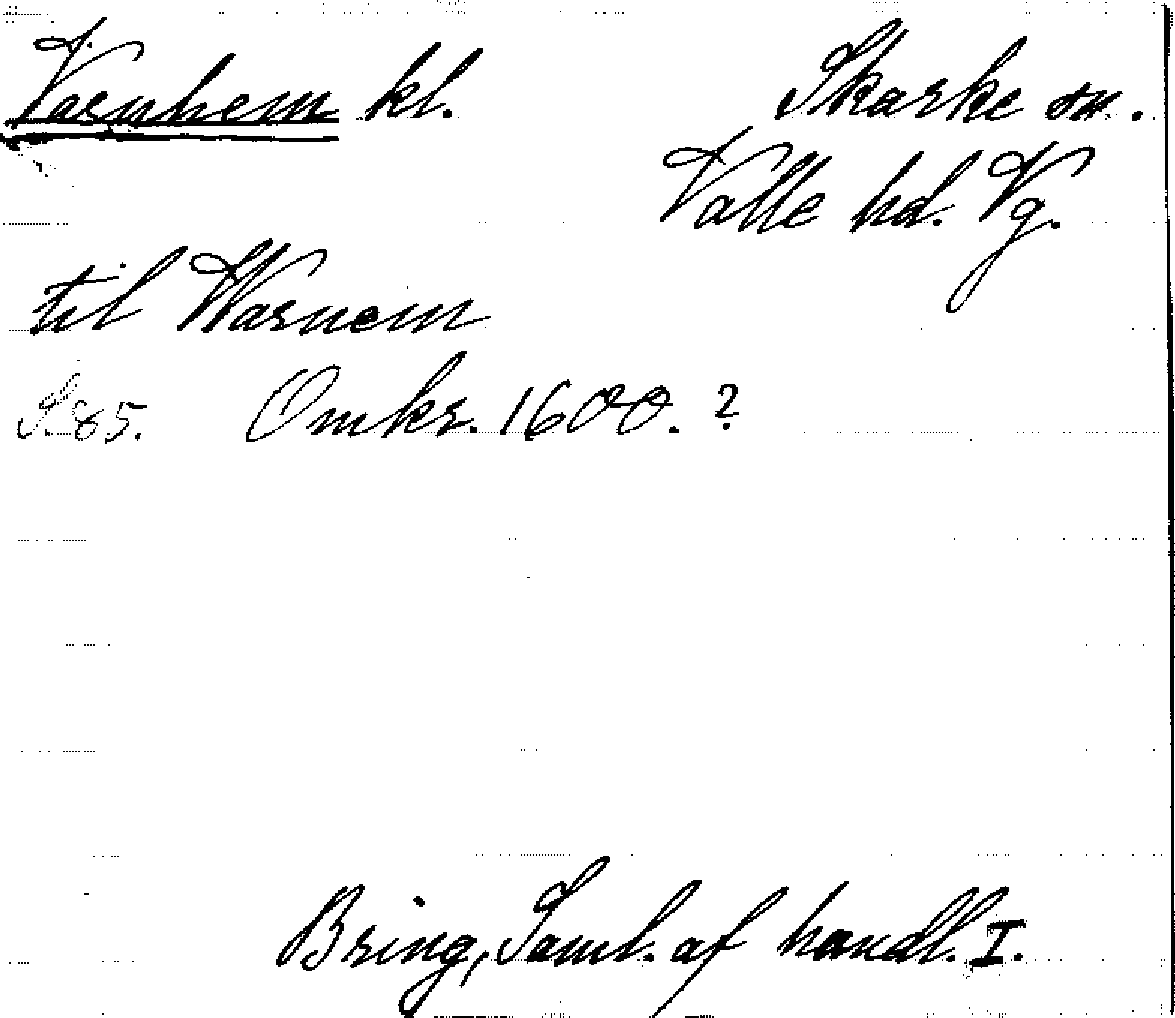 Varnhem kl. Skarke sn.
Valle hd. Vg.
til Warnem
S. 85. Omkr. 1600. ?
Bring, Saml. af handl. I.